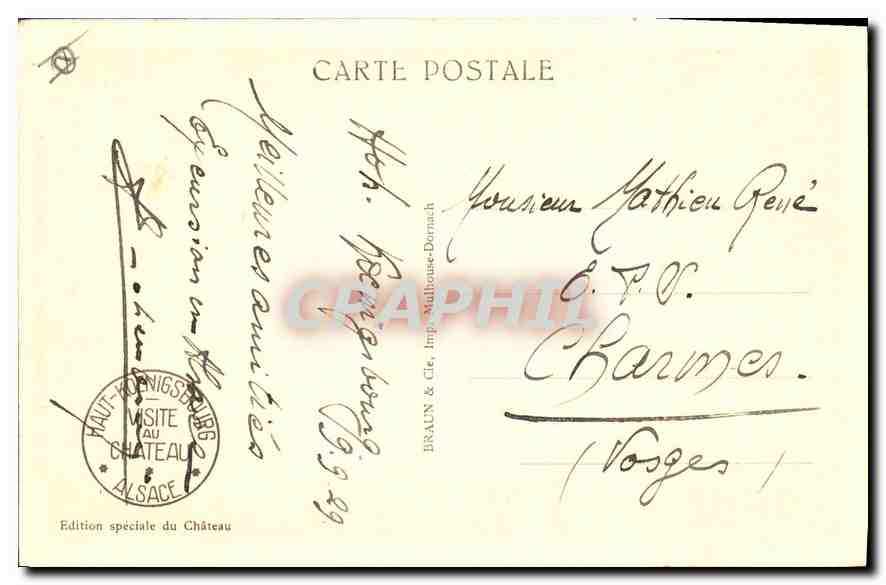 CARTE POSTALE
Hoh. Koenigsbourg
19.9.29
Meilleures amitiés
Excursion en Alsace
BRAUN & Cie, Imp. Mulhouse-Dornach
Monsieur Mathieu René
E. P. V.
Charmes.
(Vosges)
HAUT-KOENIGSBOURG
VISITE
AU
CHATEAU
* ALSACE *
Edition spéciale du Château
CPAPHIL